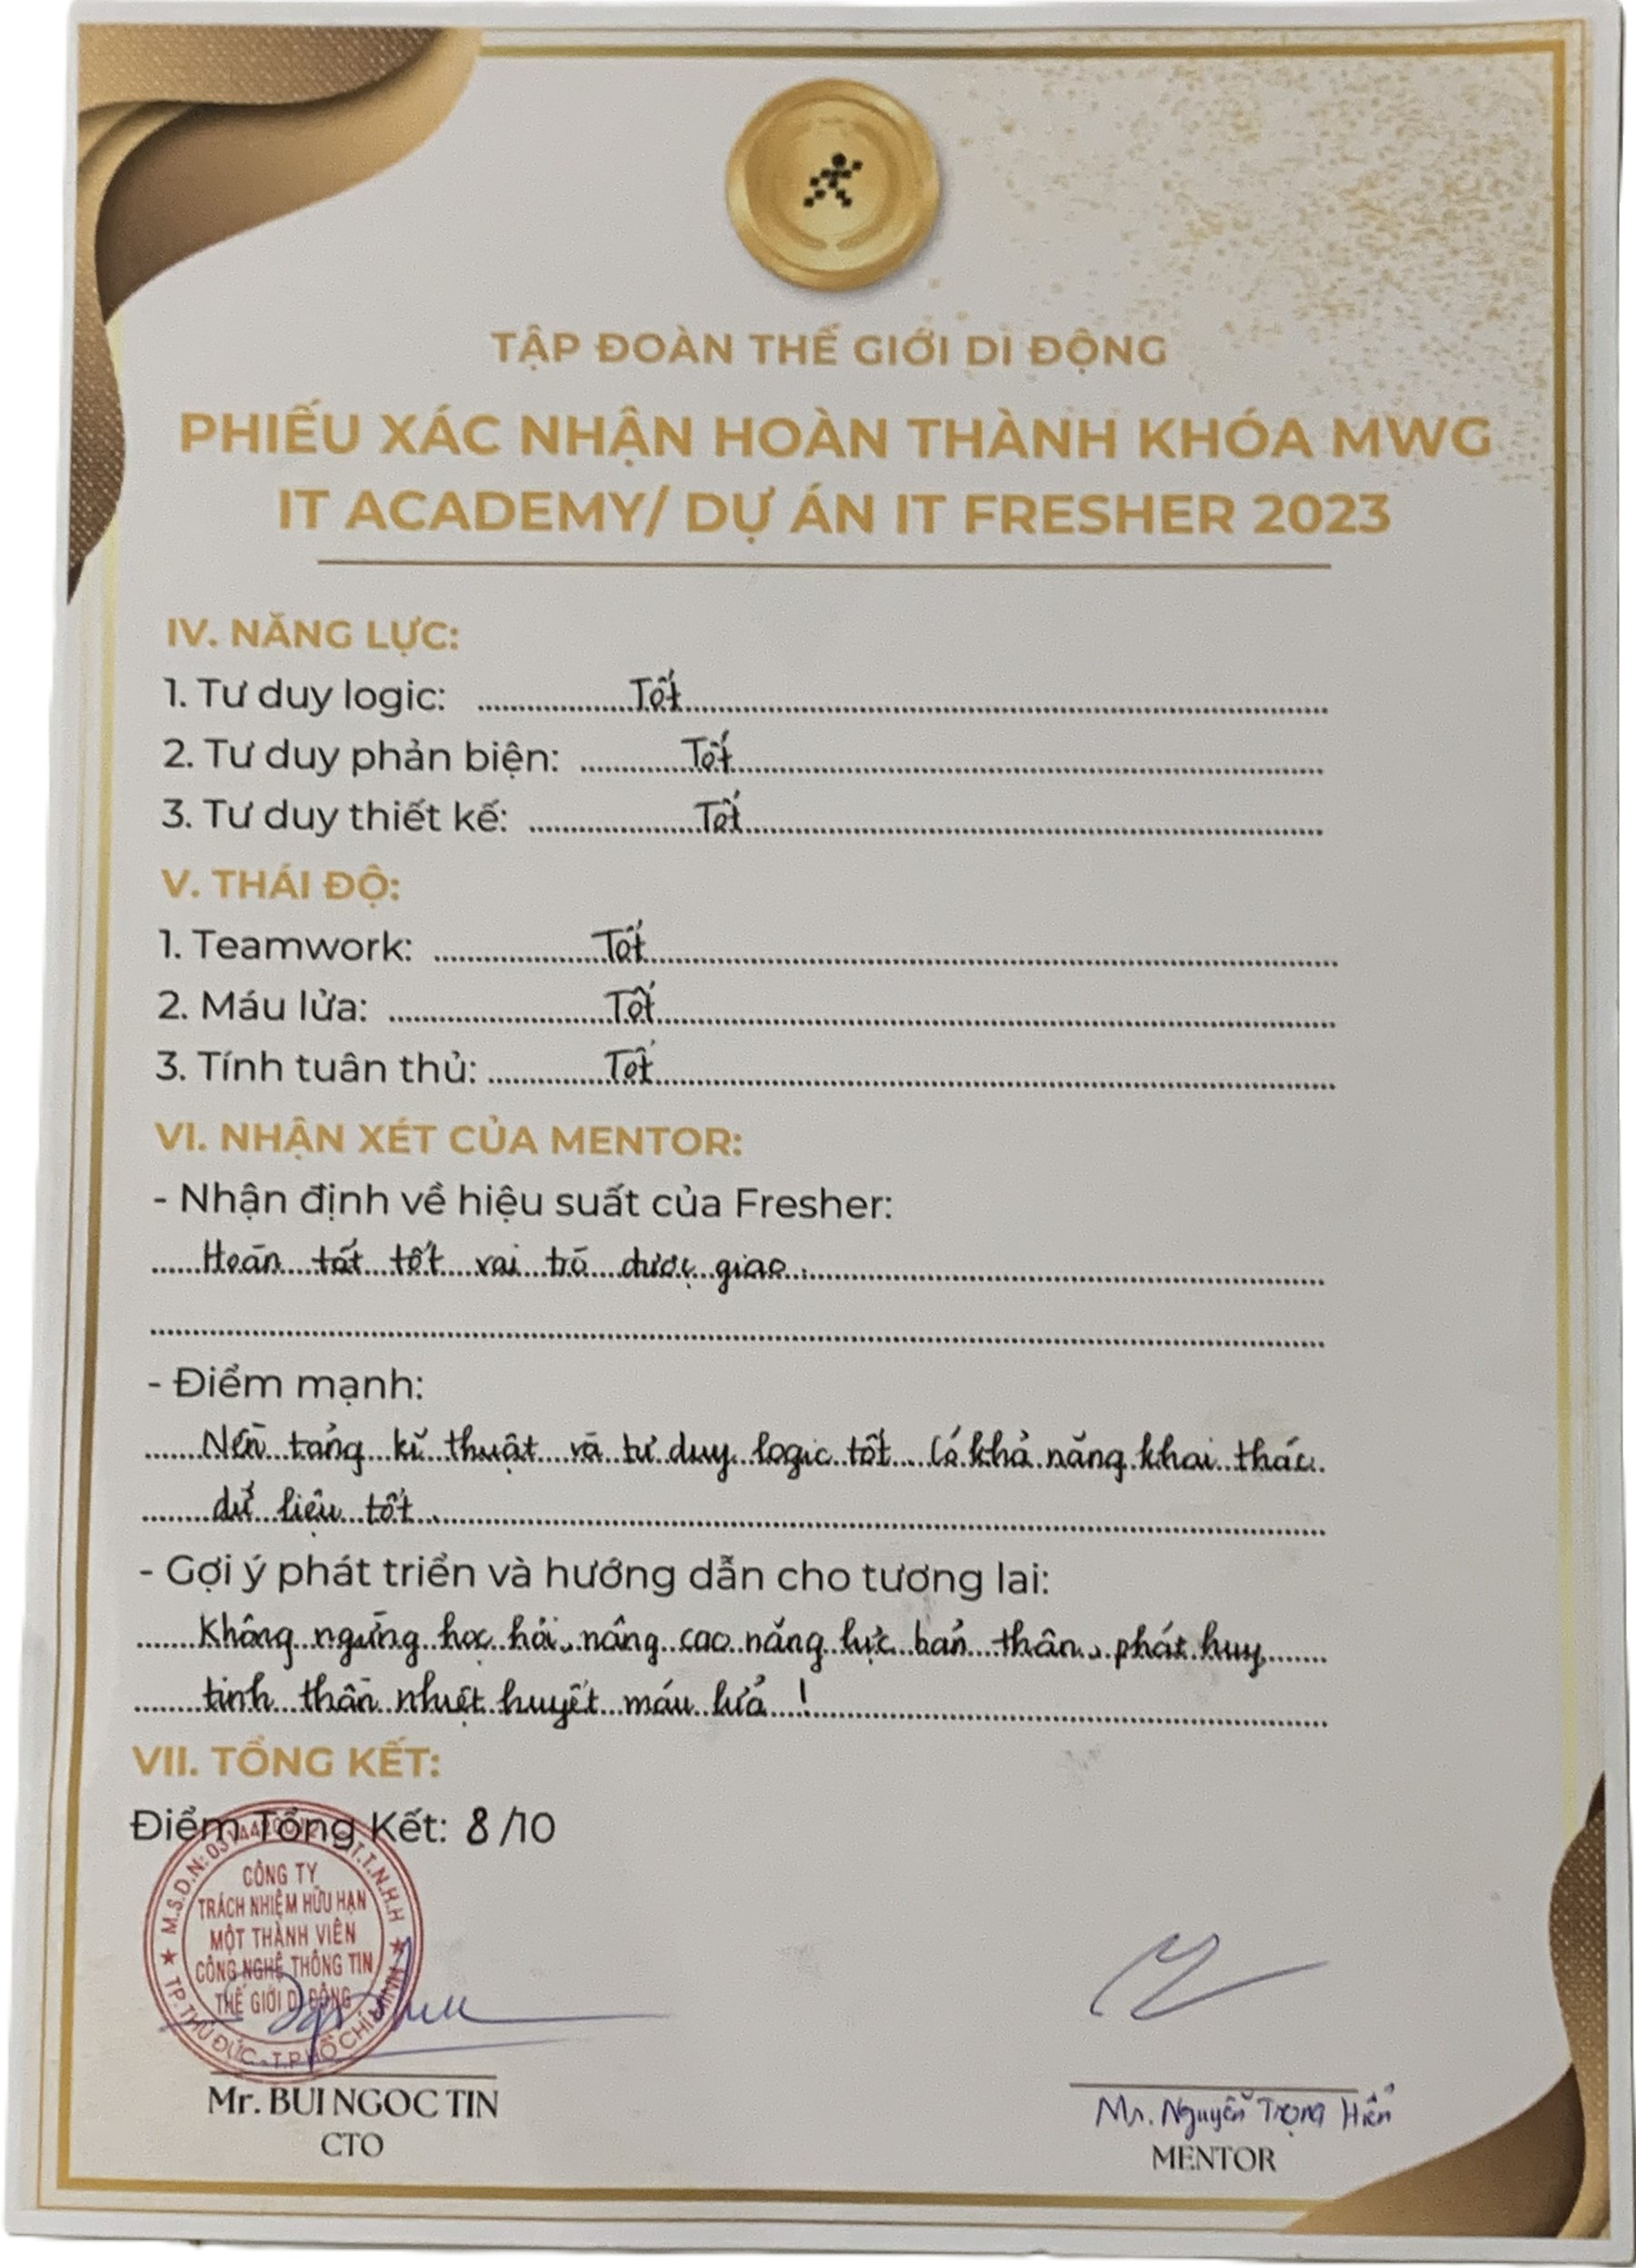 TẬP ĐOÀN THẾ GIỚI DI ĐỘNG
PHIẾU XÁC NHẬN HOÀN THÀNH KHÓA MWG
IT ACADEMY/ DỰ ÁN IT FRESHER 2023
IV. NĂNG LỰC:
1. Tư duy logic: Tốt
2. Tư duy phản biện: Tốt
3. Tư duy thiết kế: Tốt
V. THÁI ĐỘ:
1. Teamwork: Tốt
2. Máu lửa: Tốt
3. Tính tuân thủ: Tốt
VI. NHẬN XÉT CỦA MENTOR:
- Nhận định về hiệu suất của Fresher:
Hoàn tất tốt vai trò được giao.
- Điểm mạnh:
Nền tảng kĩ thuật và tư duy logic tốt. Có khả năng khai thác
dữ liệu tốt.
- Gợi ý phát triển và hướng dẫn cho tương lai:
Không ngừng học hỏi, nâng cao năng lực bản thân, phát huy
tinh thần nhiệt huyết máu lửa !
VII. TỔNG KẾT:
Điểm Tổng Kết: 8/10
M.S.D.N: C.T.T.N.H.H
CÔNG TY
TRÁCH NHIỆM HỮU HẠN
MỘT THÀNH VIÊN
CÔNG NGHỆ THÔNG TIN
THẾ GIỚI DI ĐỘNG
TP. THỦ ĐỨC - T.P HỒ CHÍ MINH
Mr. BUI NGOC TIN
CTO
Mr. Nguyễn Trọng Hiển
MENTOR